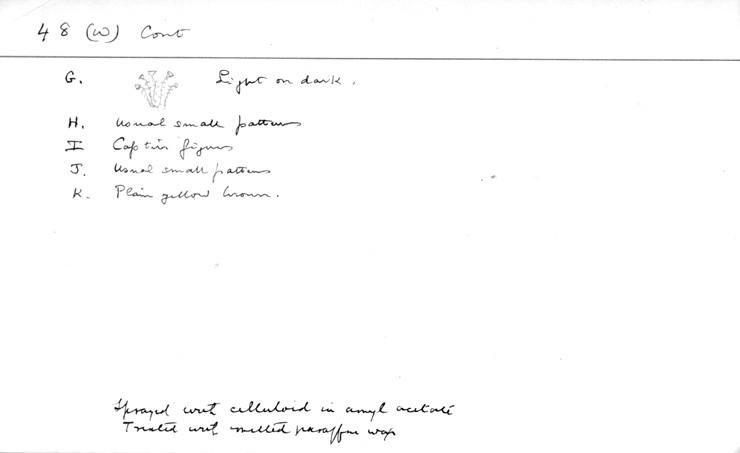 48 (W) Cont
G. Light on dark.
H. Usual small patterns
I Captive figures
J. Usual small patterns
K. Plain yellow brown.
Sprayed with celluloid in amyl acetate
Treated with melted paraffine wax